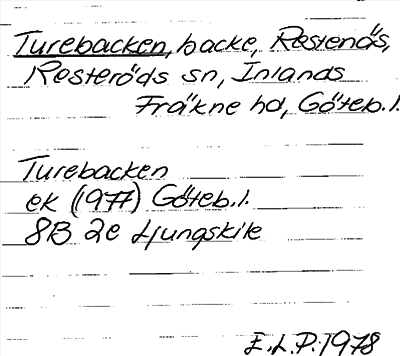 Turebacken, backe, Restenäs,
Resteröds sn, Inlands
Fräkne hd, Göteb.l.
Turebacken
ek (1977) Göteb.l.
8B 2e Ljungskile
E.L.P. 1978